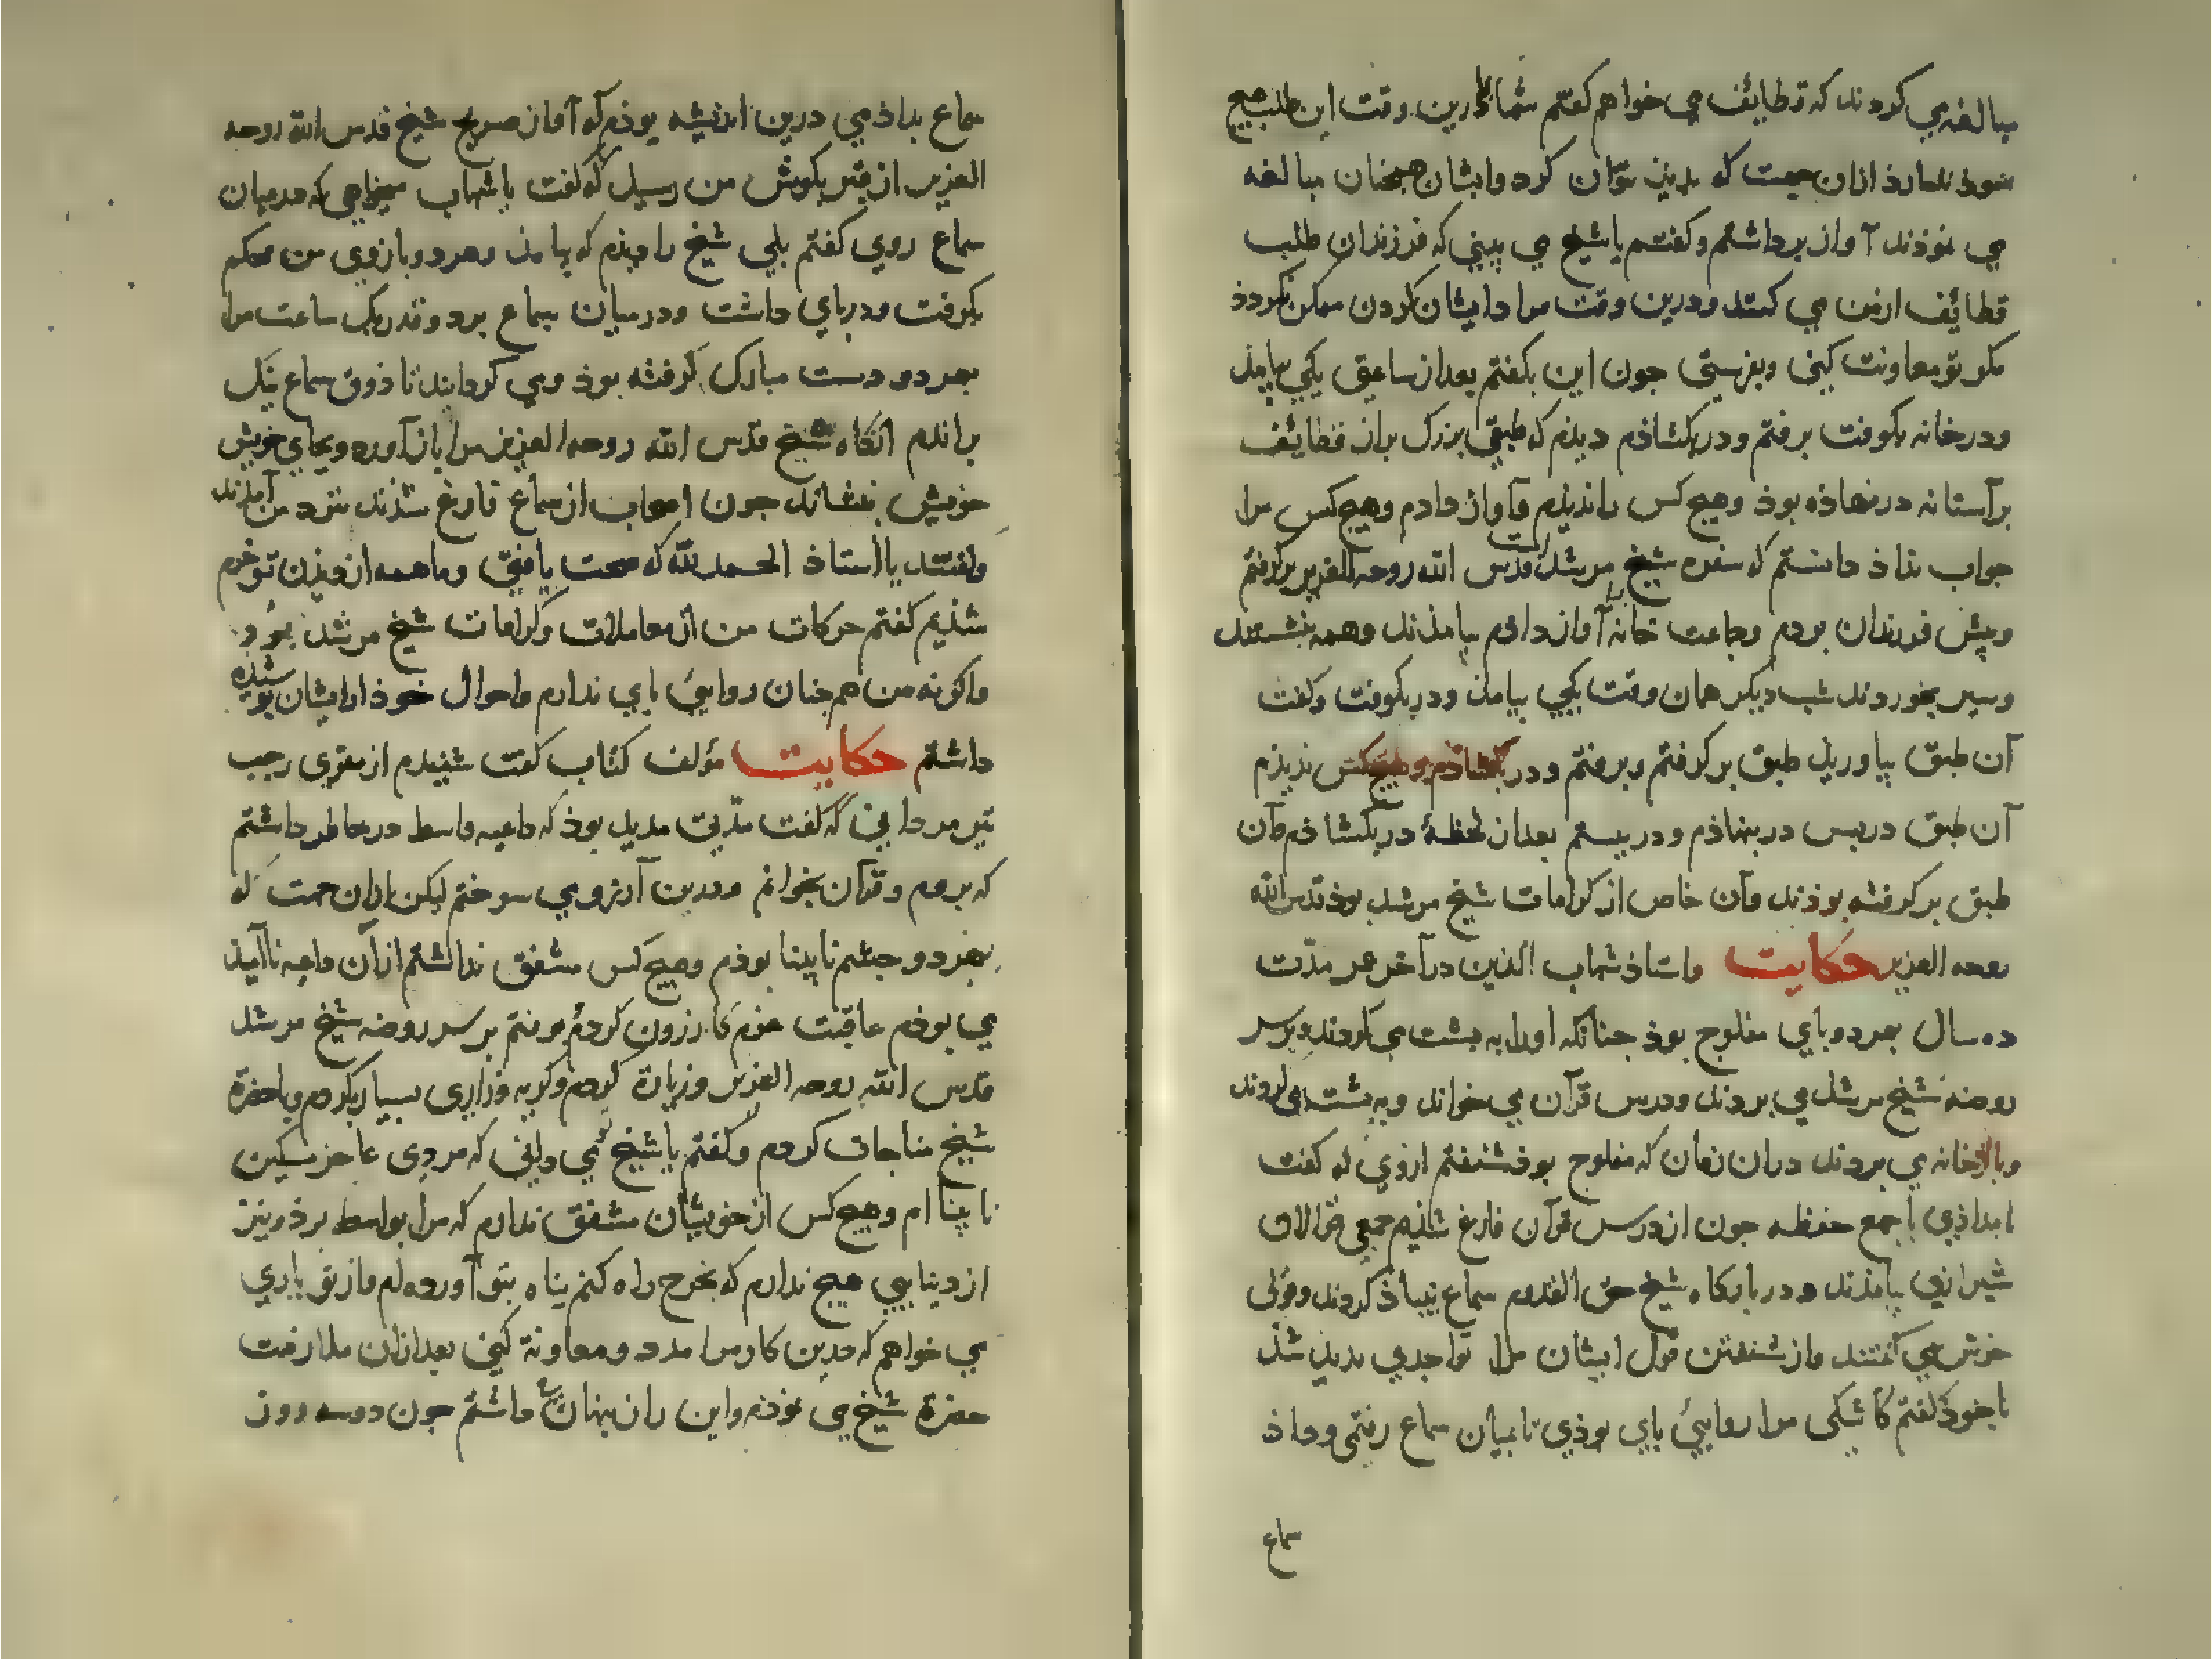 مبالغه می کردند که قطایف می خواهم کفتم شما را درین وقت این طلب هیچ
سوذ ندارذ ازان جهت که بدیذ نتوان کرد وایشان همچنان مبالغه
می نموذند آواز برداشتم وکفتم یا شیخ می بینی که فرزندان طلب
قطایف ازمن می کنند ودرین وقت مرا دایشان کردن ممکن نکردذ
مکر تو معاونت کنی وبفرستی جون این بکفتم بعدازساعتی یکی بیامذ
ودرخانه بکوفت برفتم ودر بکشاذم دیذم که طبقی بزرک براز قطایف
برآستانه در نهاذه بوذ وهیج کس را ندیذم وآواز دادم وهیج کس مرا
جواب نداذ دانستم که سفره شیخ مرشد است قدس الله روحه العزیز برکرفتم
وپیش فرزندان بردم وجماعت خانه را آواز دادم بیامذند وهمه بنشستند
وسیر بخوردند شب دیکر همان وقت یکی بیامذ ودر بکوفت وکفت
آن طبق بیاورید طبق برکرفتم وبرفتم ودر بکشاذم وهیج کس ندیذم
آن طبق دربس در بنهاذم ودر ببستم بعداز لحظهٔ در بکشاذم وآن
طبق برکرفته بوذند وآن خاص از کرامات شیخ مرشد بوذ قدس الله
روحه العزیز حکایت واستاذ شهاب الذین درآخر عمر مدّت
ده سال بهردوبای مفلوج بوذ جنانکه اورا به بشت می کردند وبر سر
روضهٔ شیخ مرشد می بردند ودرس قرآن می خواند وبه بشت می کردند
وباز خانه می بردند دران زمان که مفلوج بوذ شنفتم ازوی که کفت
بامداذی با جمع حفظه جون ازدرس قرآن فارغ شذیم جمعی قوّالان
شیرازی بیامذند ودر بارکاه شیخ حق القدوم سماع بنیاذ کردند وقولی
خوش می کفتند واز شنفتن قول ایشان مرا تواجدی بدید شذ
با خوذ کفتم کاشکی مرا روایی بای بوذی تا میان سماع رفتمی وداذ
سماع
سماع بداذمی درین اندیشه بوذم که آواز صریح شیخ قدس الله روحه
العزیز از قبر بکوش من رسید که کفت یا شهاب میخواهی که درمیان
سماع روی کفتم بلی شیخ را دیذم که بیامذ وهردوبازوی من محکم
بکرفت ودربای داشت ودرمیان سماع برد وقدریک ساعت مرا
بهردو دست مبارک کرفته بوذ ومی کردانید تا ذوق سماع نیک
براندم آنکاه شیخ قدس الله روحه العزیز مرا باز آورد وبجای خویش
خویش بنشاند جون اصحاب از سماع فارغ شذند نزد من آمذند
وکفتند یا استاذ الحمد لله که صحت یافتی وما همه از دیذن تو خرم
شذیم کفتم حرکات من از معاملات وکرامات شیخ مرشد بوذ
واکرنه من همچنان روایی بای ندارم واحوال خوذ ازایشان بوشیده
داشتم حکایت مؤلف کتاب کفت شنیدم از مقری رجب
تیرمردانی که کفت مدّتی مدید بوذ که داعیه واسط درخاطر داشتم
که بروم وقرآن بخوانم ودرین آرزو می سوختم لیکن ازان جهت که
بهردو جشم نابینا بوذم وهیج کس مشفق نداشتم ازان واجه ناامیذ
می بوذم عاقبت عزم کازرون کردم برفتم بر سر روضه شیخ مرشد
قدس الله روحه العزیز وزیارة کردم وکریه وزاری بسیار بکردم وباحضرة
شیخ مناجات کردم وکفتم یا شیخ تو می دانی که مردی عاجز مسکین
نابیناام وهیج کس ازخویشان مشفق ندارم که مرا بواسط برذ ونیز
از دنیایی هیج ندارم که بخرج راه کنم بناه بتو آورده ام واز تو یاری
می خواهم که درین کار مرا مدد ومعاونة کنی بعدازان ملازمت
حضرة شیخ می نموذم واین راز بنهان می داشتم جون دوسه روز